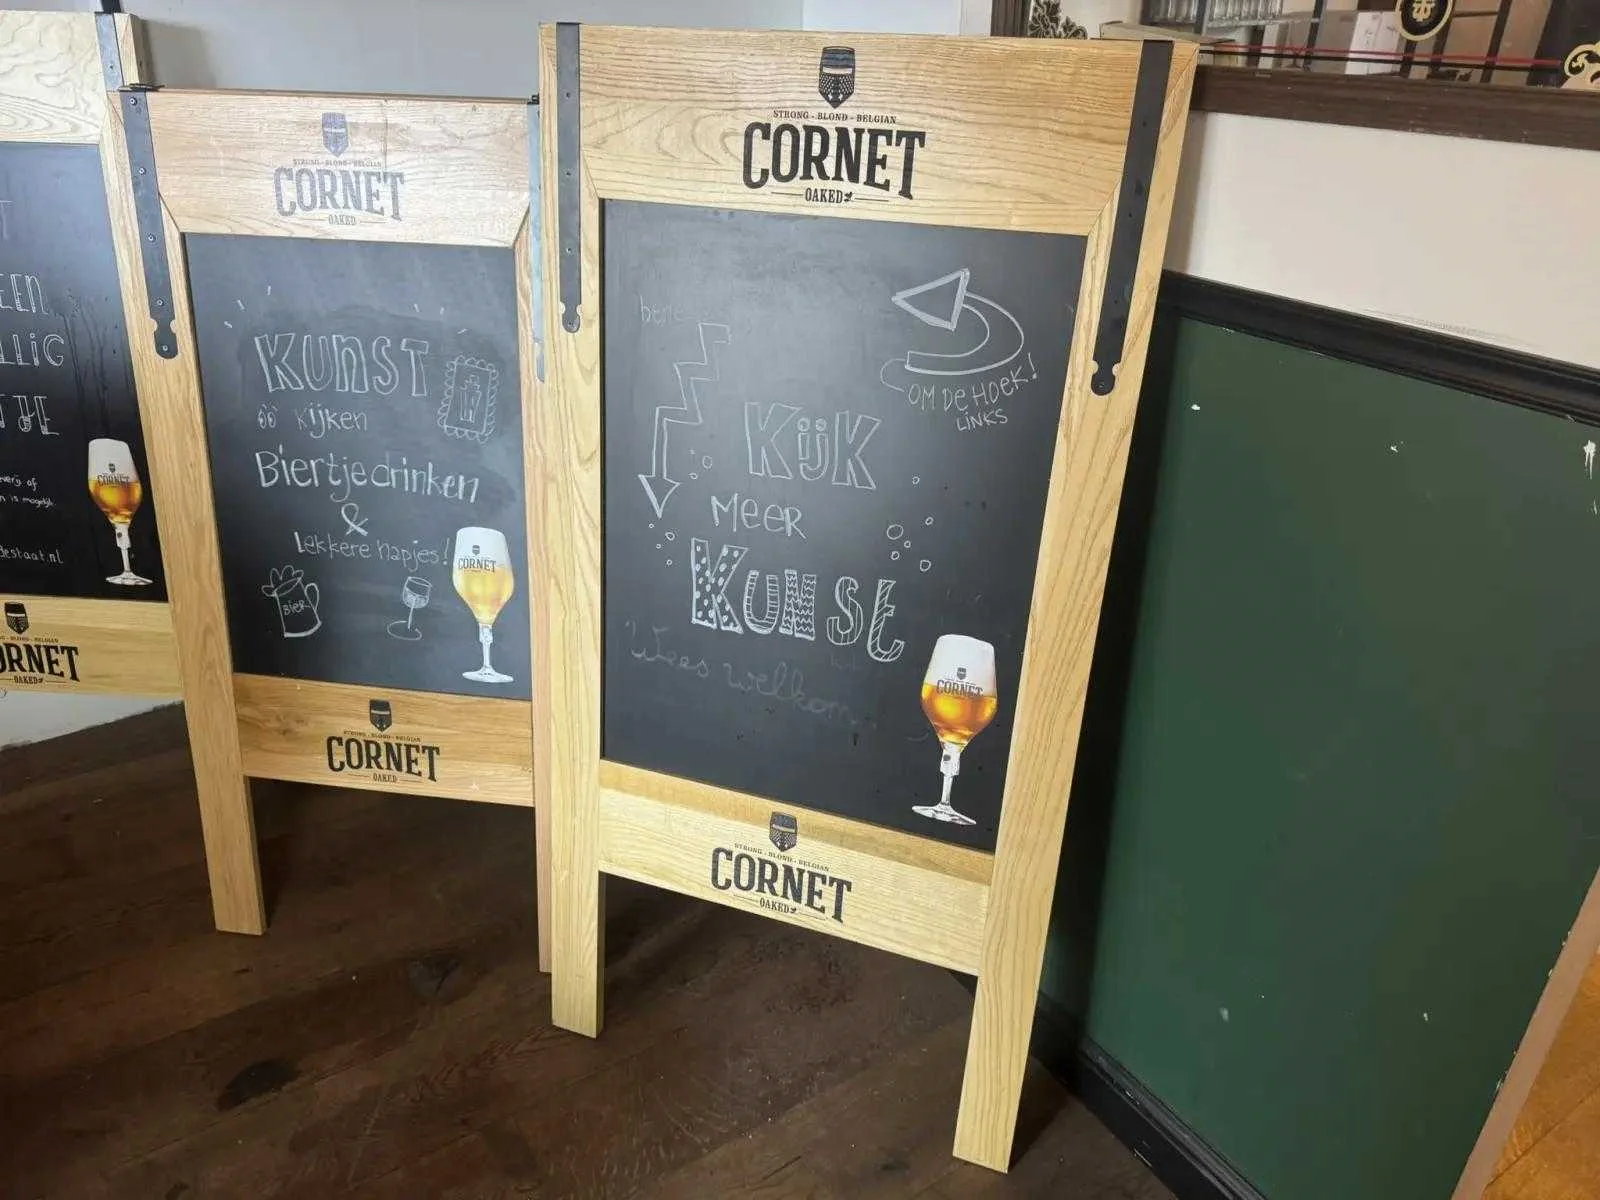 EEN
LLiG
TJE
n is mogelijk
destaat.nl
STRONG - BLOND - BELGIAN
CORNET
OAKED
CORNET
STRONG - BLOND - BELGIAN
CORNET
OAKED
KUNST
kijken
Biertje drinken
&
Lekkere hapjes!
BieR
CORNET
STRONG - BLOND - BELGIAN
CORNET
OAKED
STRONG - BLOND - BELGIAN
CORNET
OAKED
OM De HOEK!
LINKS
KijK
MeeR
KUNSt
Wees welkom
CORNET
STRONG - BLOND - BELGIAN
CORNET
OAKED